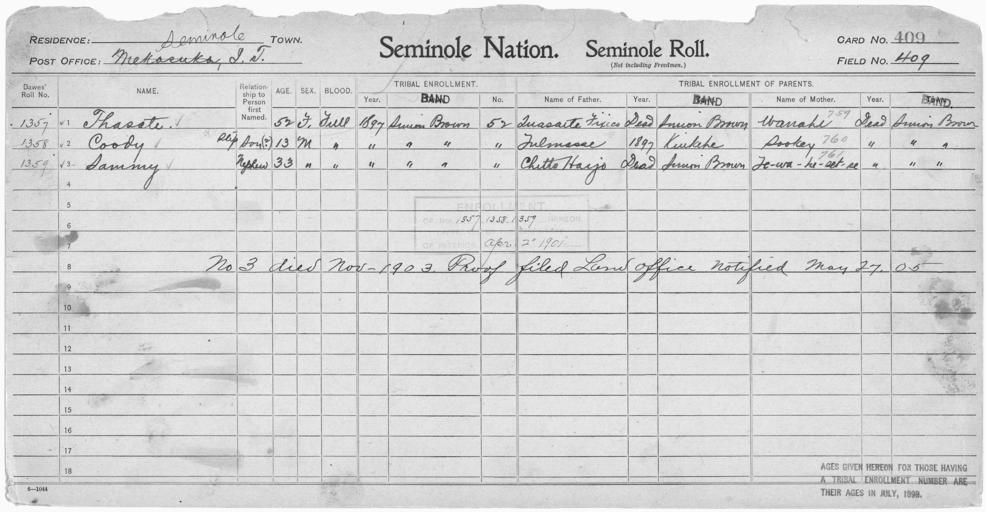 RESIDENCE: Seminole TOWN.
POST OFFICE: Mekasuka, I. T.
Seminole Nation. Seminole Roll.
(Not including Freedmen.)
CARD NO. 409
FIELD NO. 409
Dawes' Roll No. NAME. Relationship to Person first Named. AGE. SEX. BLOOD. TRIBAL ENROLLMENT. TRIBAL ENROLLMENT OF PARENTS.
Year. BAND No. Name of Father. Year. BAND Name of Mother. Year. BAND
1357 1 Thasate 52 F. Full 1897 Simion Brown 52 Dead Simion Brown Wanahe 759 Dead Simion Brown
1358 2 Cooby Step Son(?) 13 M " " " " " Fulmasse 1897 Kinkehe Sookey 760 " " "
1359 3 Sammy Nephew 33 " " " " " " Chitto Harjo Dead Simion Brown 761 " " "
4
5
ENROLLMENT
6 1357 1358 1359 HEREON
7 OF INTERIOR Apr. 2" 1901
8 No 3 died Nov - 1903. Proof filed Land office notified May 27. 05
9
10
11
12
13
14
15
16
17
18
AGES GIVEN HEREON FOR THOSE HAVING
A TRIBAL ENROLLMENT NUMBER ARE
THEIR AGES IN JULY, 1898.
6—1044